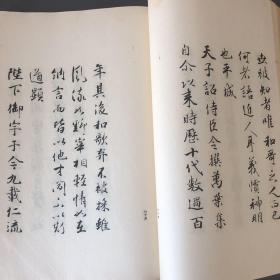 世、被知者唯和歌之人而已
何者語近人耳義慣神明
也平城
天子詔侍臣令撰萬葉集
自尒以来時歷十代数過百
年其後和歌弃不被採雖
風流如野宰相輕情如在
納言而皆以他才聞不以斯
道顕
陛下御宇于今九載仁流